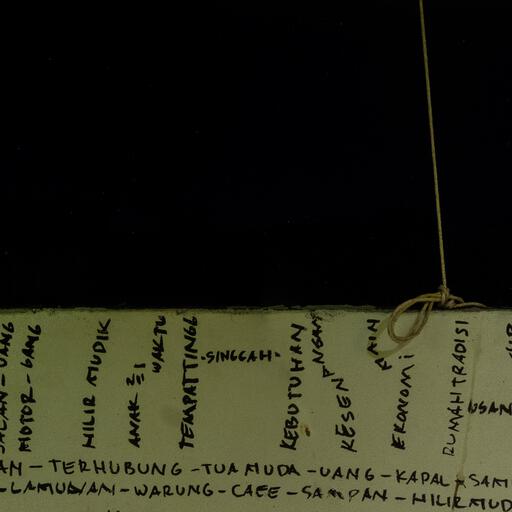 JALAN-UANG
MOTOR-GANG
HILIR MUDIK
ANAK2=1
WAKTU
TEMPATTINGG
·SINGGAH·
KEBUTUHAN
KESENANGAN
MAIN
EKONOMI
RUMAHTRADISI
USAN
AN-TERHUBUNG-TUAMUDA-UANG-KAPAL-SAM
-LAMUNAN-WARUNG-CAFE-SAMPAN-HILIRMUD